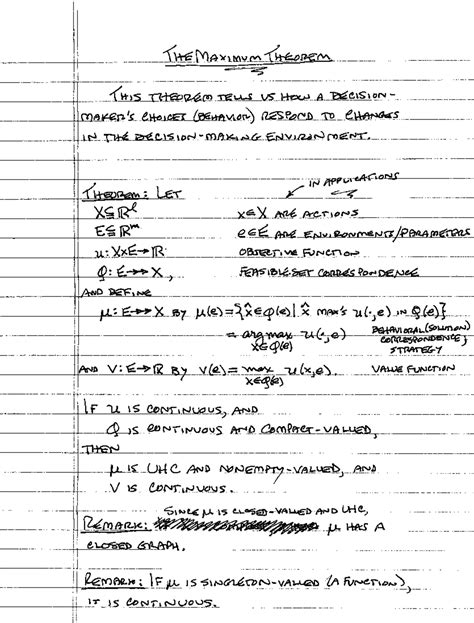 THE MAXIMUM THEOREM
THIS THEOREM TELLS US HOW A DECISION-
MAKER'S CHOICES (BEHAVIOR) RESPOND TO CHANGES
IN THE DECISION-MAKING ENVIRONMENT.
IN APPLICATIONS
THEOREM: LET
X⊆ℝˡ x∈X ARE ACTIONS
E⊆ℝᵐ e∈E ARE ENVIRONMENTS/PARAMETERS
u: X×E→ℝ OBJECTIVE FUNCTION
φ: E↠X, FEASIBLE SET CORRESPONDENCE
AND DEFINE
μ: E↠X BY μ(e) = {x̂∈φ(e) | x̂ MAX'S u(·,e) IN φ(e)}
= argmax u(·,e) BEHAVIORAL (SOLUTION)
x∈φ(e) CORRESPONDENCE;
STRATEGY
AND V: E→ℝ BY V(e) = max u(x,e). VALUE FUNCTION
x∈φ(e)
IF u IS CONTINUOUS, AND
φ IS CONTINUOUS AND COMPACT-VALUED,
THEN
μ IS UHC AND NONEMPTY-VALUED, AND
V IS CONTINUOUS.
SINCE μ IS CLOSED-VALUED AND UHC,
REMARK: μ HAS A
CLOSED GRAPH.
REMARK: IF μ IS SINGLETON-VALUED (A FUNCTION),
IT IS CONTINUOUS.